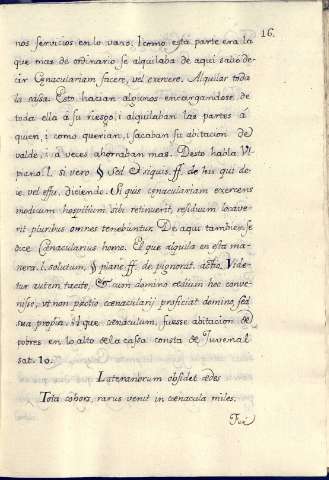 16.
nos servicios en lo vano. I como esta parte era la
que mas de ordinario se alquilaba de aqui salio de-
cir Cœnaculariam facere, vel exercere. Alquilar toda
la cassa. Esto hacian algunos encargandose de
toda ella à su riesgo, i alquilaban las partes à
quien, i como querian, i sacaban su abitacion de
valde, i à veces ahorraban mas. Desto habla Vl-
piano l. si vero § Sed et si quis ff. de his qui de-
ie. vel effu. diciendo. Si quis cœnaculariam exercens
modicum hospitium sibi retinuerit, residuum locave-
rit pluribus omnes tenebuntur. De aqui tambien se
dice Cœnacularius homo. El que alquila en esta ma-
nera. l. solutum, § plane ff. de pignorat. actio. Vide-
tur autem tacite, et cum domino ædium hoc conve-
nisse, ut non pactio cœnacularij proficiat domino, sed
sua propria. I que cœnaculum, fuesse abitacion de
pobres en lo alto de la cassa consta de Juvenal
sat. 10.
Lateranorum obsidet ædes
Tota cohors, rarus venit in cœnacula miles.